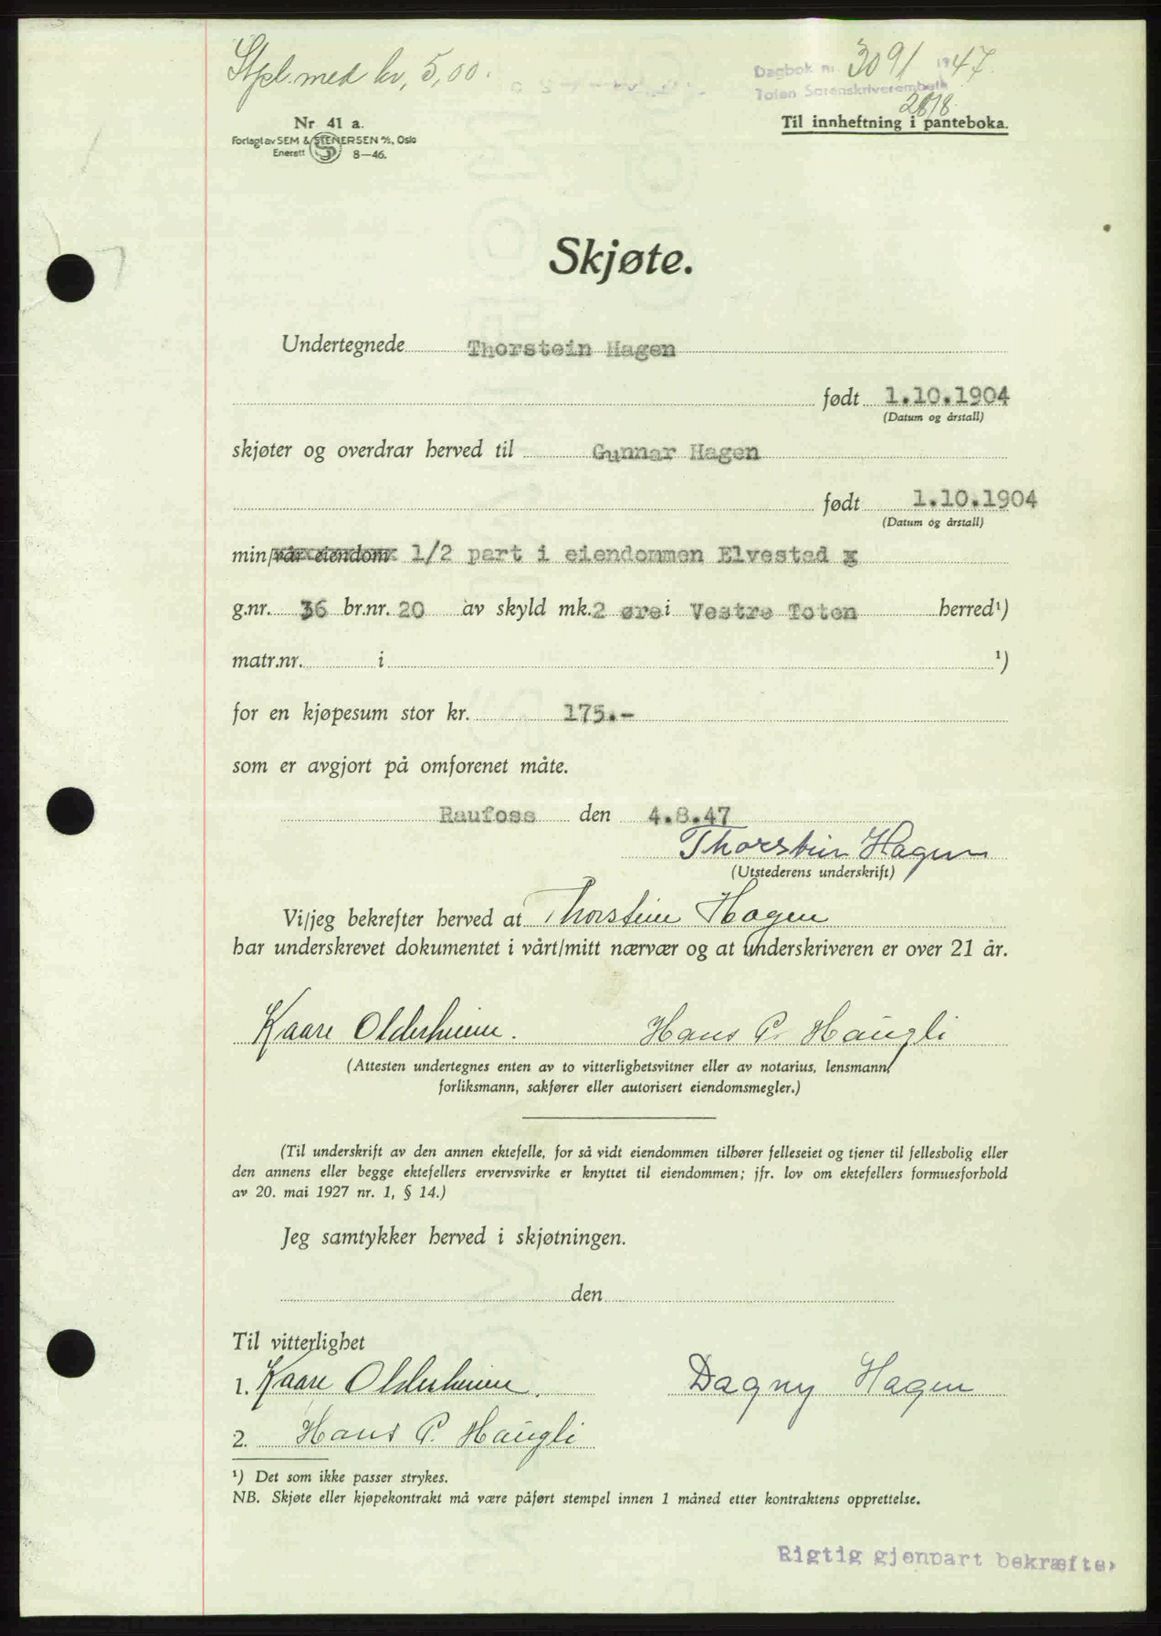 Stpl. med kr, 5,00.
Dagbok nr. 3091 1947.
Toten Sorenskriverembete
2818
Nr 41 a.
Til innheftning i panteboka.
Forlagt av SEM & STENERSEN A/S, Oslo
Enerett 8—46.
Skjøte.
Undertegnede Thorstein Hagen
født 1.10.1904
(Datum og årstall)
skjøter og overdrar herved til Gunnar Hagen
født 1.10.1904
(Datum og årstall)
min/vår eiendom 1/2 part i eiendommen Elvestad x
g.nr. 36 br.nr. 20 av skyld mk. 2 øre i Vestre Toten herred¹)
matr.nr. i ¹)
for en kjøpesum stor kr. 175.-
som er avgjort på omforenet måte.
Raufoss den 4.8.47
Thorstein Hagen
(Utstederens underskrift)
Vi/jeg bekrefter herved at Thorstein Hagen
har underskrevet dokumentet i vårt/mitt nærvær og at underskriveren er over 21 år.
Kaare Olderheim. Hans P. Haugli
(Attesten undertegnes enten av to vitterlighetsvitner eller av notarius, lensmann,
forliksmann, sakfører eller autorisert eiendomsmegler.)
(Til underskrift av den annen ektefelle, for så vidt eiendommen tilhører felleseiet og tjener til fellesbolig eller
den annens eller begge ektefellers ervervsvirke er knyttet til eiendommen; jfr. lov om ektefellers formuesforhold
av 20. mai 1927 nr. 1, § 14.)
Jeg samtykker herved i skjøtningen.
den
Til vitterlighet
1. Kaare Olderheim. Dagny Hagen
2. Hans P. Haugli
¹) Det som ikke passer strykes.
NB. Skjøte eller kjøpekontrakt må være påført stempel innen 1 måned etter kontraktens opprettelse.
Rigtig gjenpart bekræftes